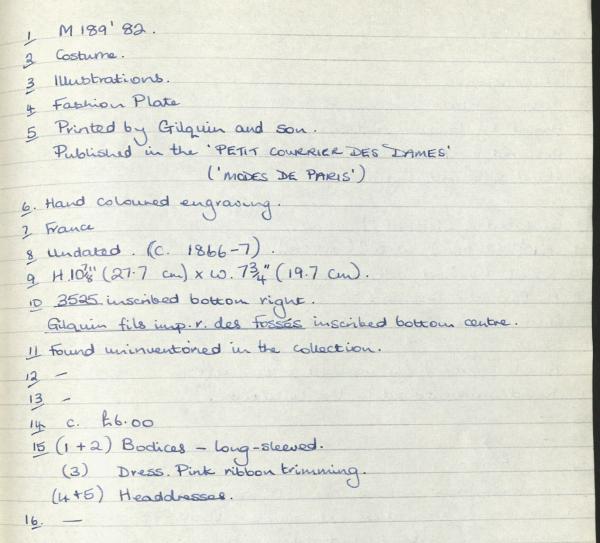 1 M 189' 82.
2 Costume.
3 Illustrations.
4 Fashion Plate
5 Printed by Gilquin and son.
Published in the 'PETIT COURRIER DES DAMES'
('MODES DE PARIS')
6. Hand coloured engraving.
7 France
8 Undated. (c. 1866-7).
9 H.10⅞" (27.7 cm) x W. 7¾" (19.7 cm).
10 3525 inscribed bottom right.
Gilquin fils imp. r. des Fossés inscribed bottom centre.
11 Found uninventoried in the collection.
12 –
13 –
14 c. £6.00
15 (1+2) Bodices – long-sleeved.
(3) Dress. Pink ribbon trimming.
(4+5) Headdresses.
16. —